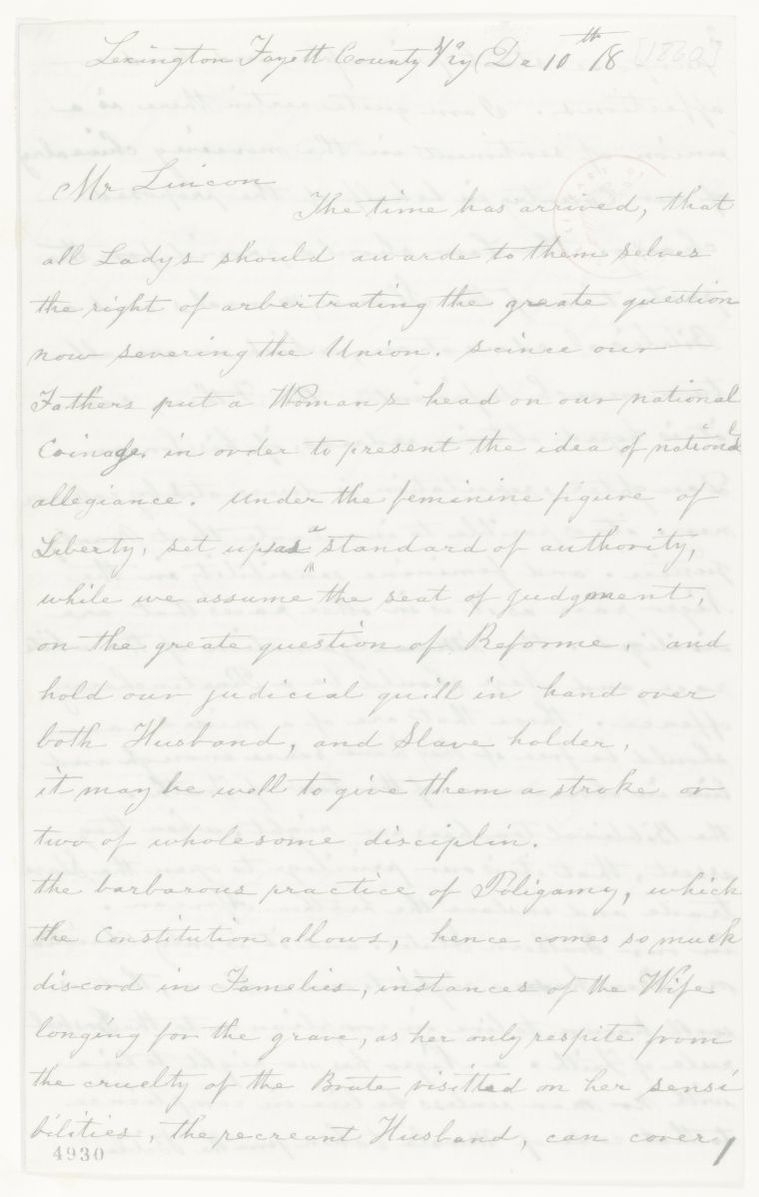 Lexington Fayett County K'y (De 10th 18 [1860]
Mr Lincon
The time has arrived, that
all Ladys should awarde to them selves
the right of arbertrating the greate question
now severing the Union. scince our
Fathers put a Woman's head on our national
Coinage. in order to present the idea of national
allegiance. under the feminine figure of
Liberty, set up as a standard of authority,
while we assume the seat of Judgment,
on the greate question of Reforme. and
hold our judicial quill in hand over
both Husband, and Slave holder,
it may be well to give them a stroke or
two of wholesome disciplin.
the barbarous practice of Poligamy, which
the Constitution allows, hence comes so much
discord in Famelies, instances of the Wife
longing for the grave, as her only respite from
the cruelty of the Brute visitted on her sensi
bilities, the recreant Husband, can cover
4930